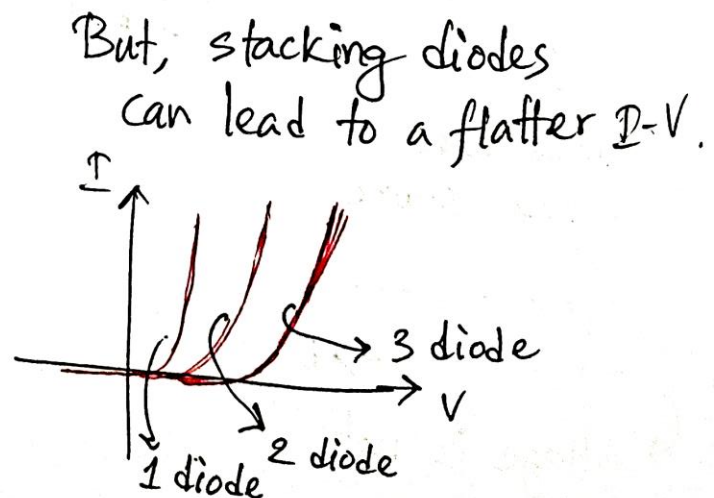 But, stacking diodes
can lead to a flatter I-V.
I
3 diode
V
2 diode
1 diode